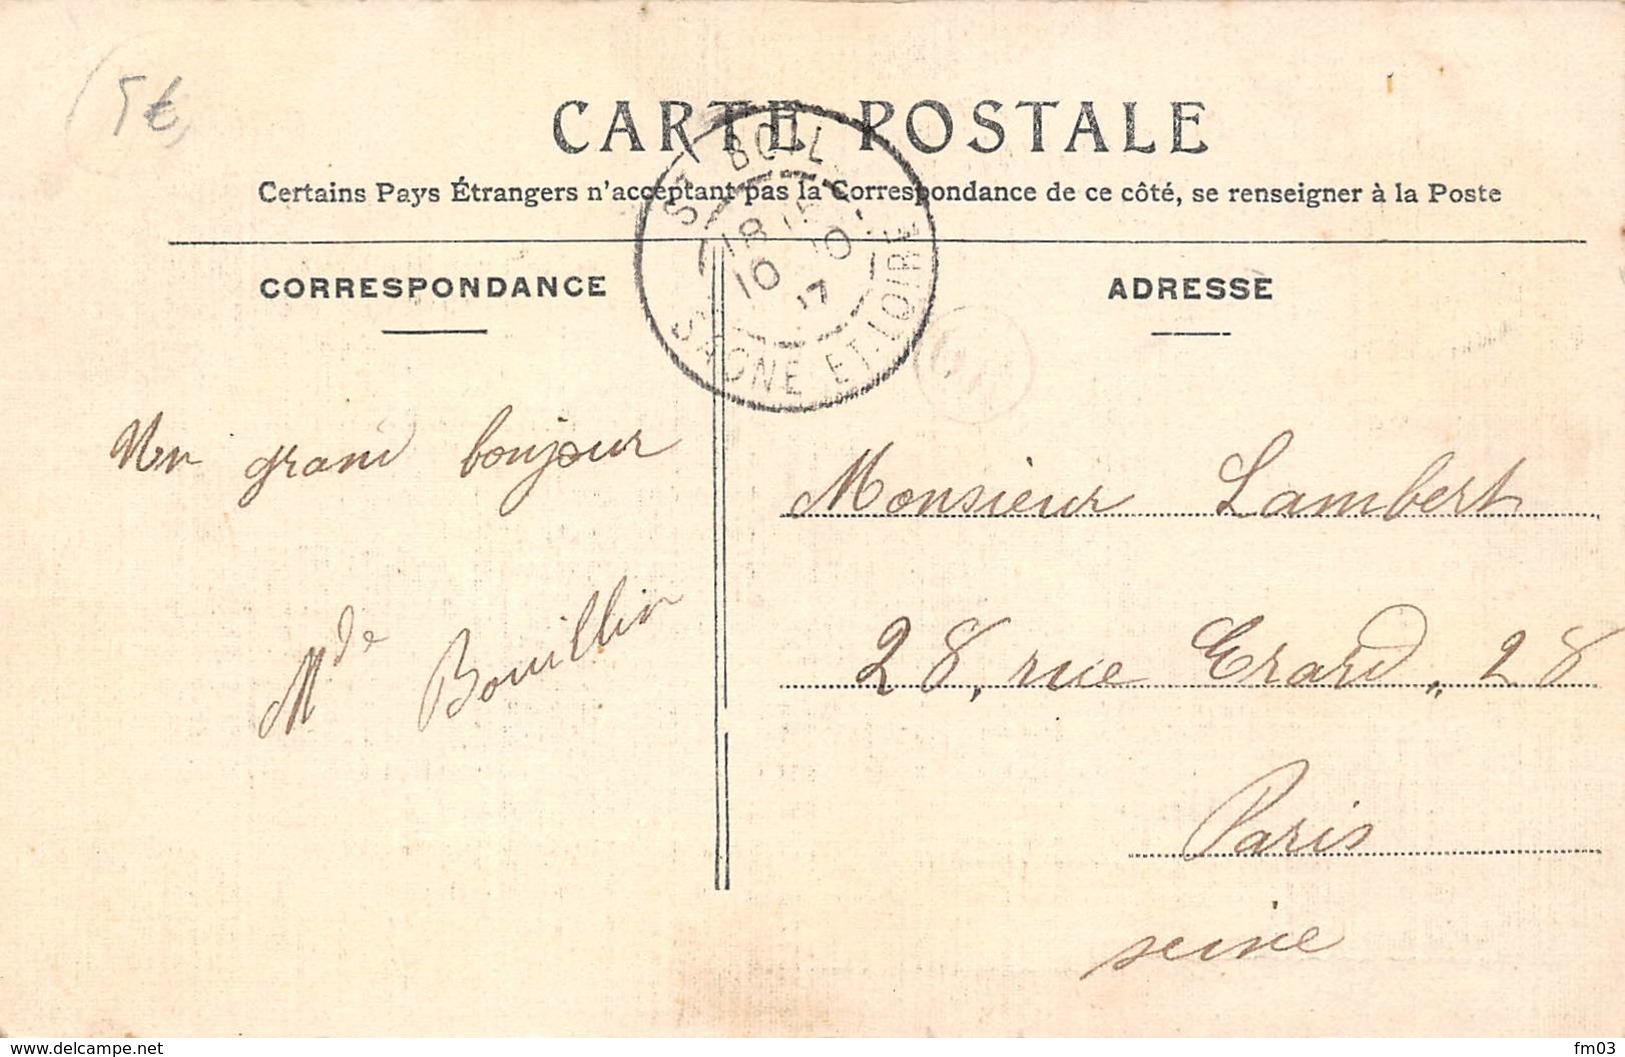 5€
CARTE POSTALE
Certains Pays Étrangers n'acceptant pas la Correspondance de ce côté, se renseigner à la Poste
ST BOIL
18 15
10 10
07
SAONE ET-LOIRE
CORRESPONDANCE
ADRESSE
Un grand bonjour
Mde Bouillin
Monsieur Lambert
28, rue Erard, 28
Paris
seine
www.delcampe.net
fm03